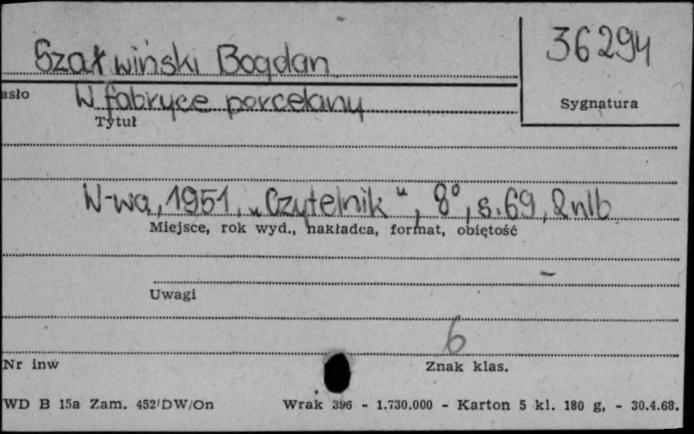 36294
Szatwiński Bogdan
asło
W fabryce porcelany
Sygnatura
Tytuł
W-wa, 1951, „Czytelnik“, 8°, s. 69, 2nlb
Miejsce, rok wyd., nakładca, format, obiętość
Uwagi
6
Nr inw
Znak klas.
WD B 15a Zam. 452/DW/On
Wrak 396 - 1.730.000 - Karton 5 kl. 180 g, - 30.4.68.